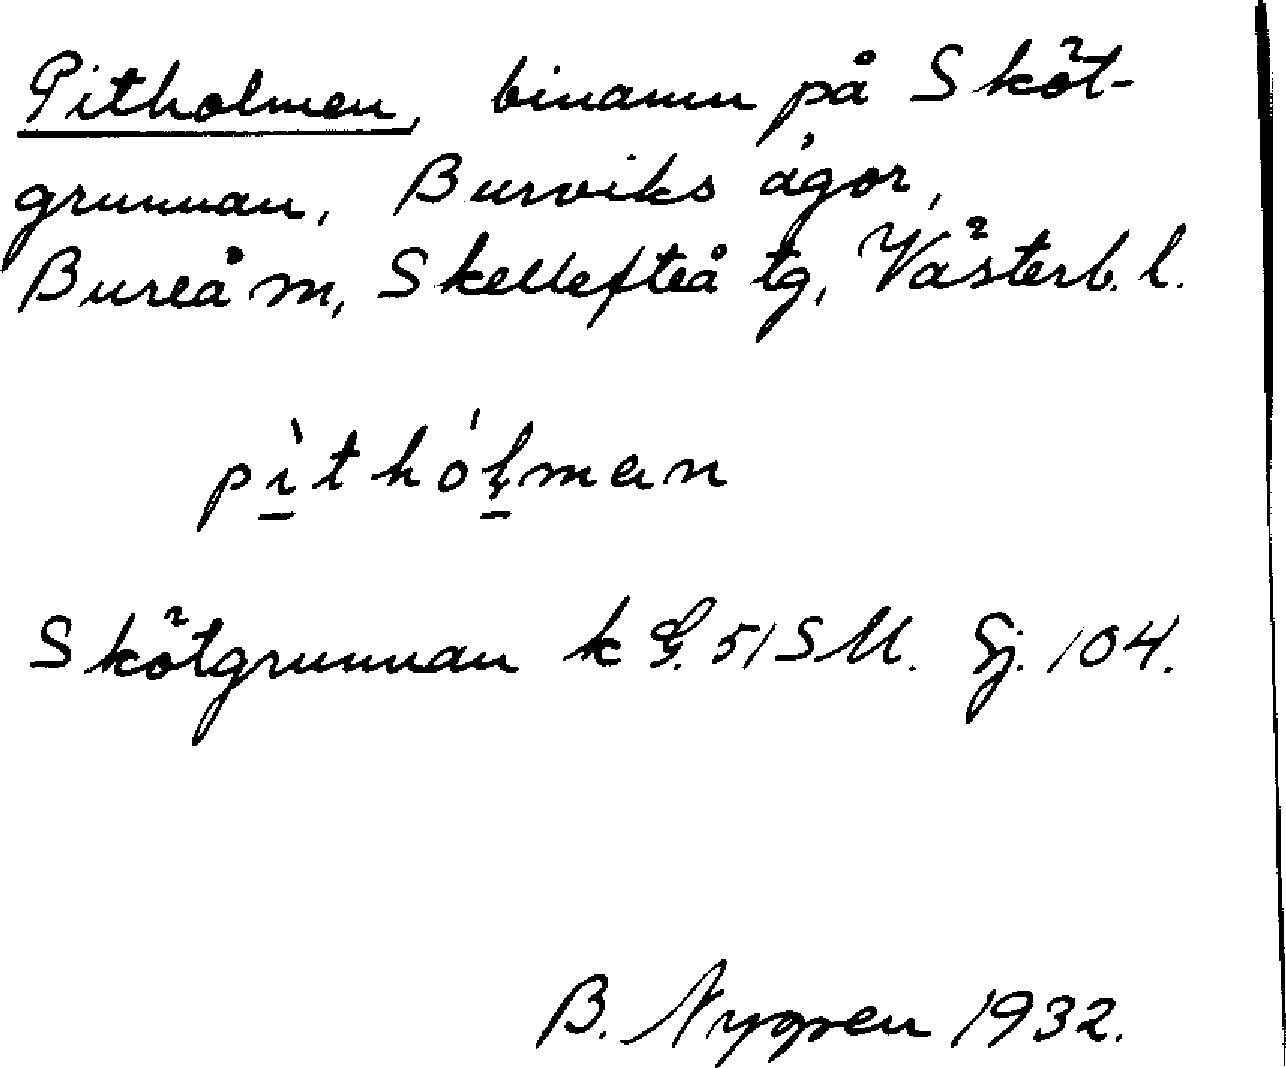 Pitholmen, binamn på Sköt-
grunnan, Burviks ägor,
Bureå m, Skellefteå tg, Västerb. l.
pı̱̀thóḻman
Skötgrunnan k G. 51 SM. Sj. 104.
B. Nygren 1932.